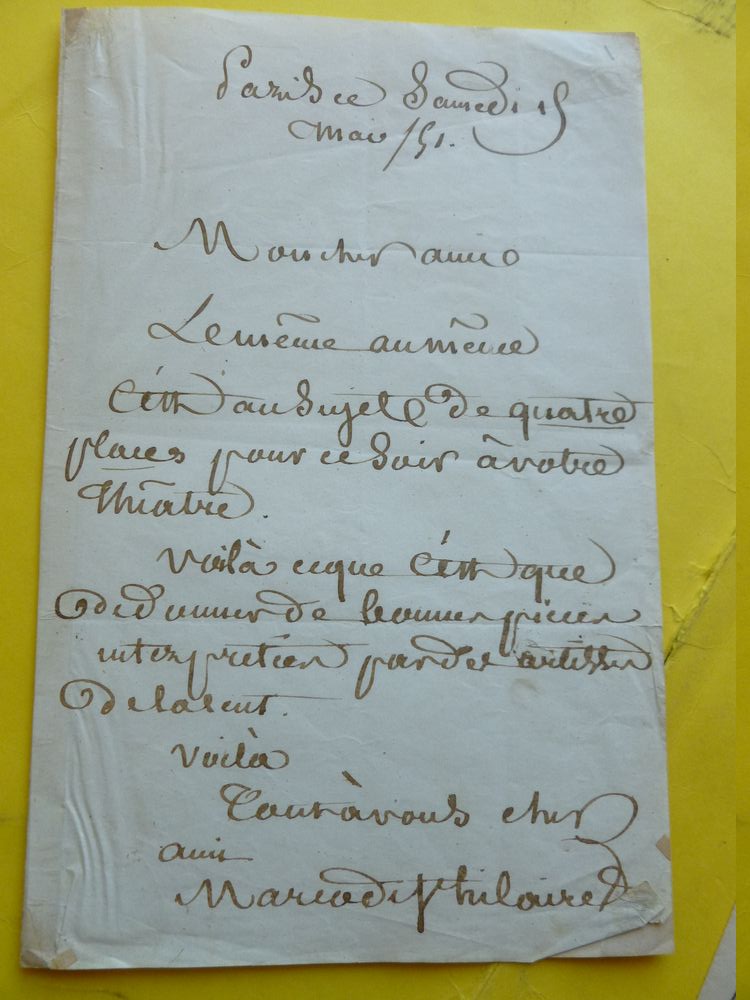 Paris ce Samedi 15
Mai /51.
Mon cher ami
Le même au même
C'est au Sujet de quatre
places pour ce Soir à votre
théâtre.
Voilà ce que c'est que
de donner de bonnes pièces
interprétées par des artistes
de talent.
Voilà
Tout à vous cher
ami
Marco de St hilaire